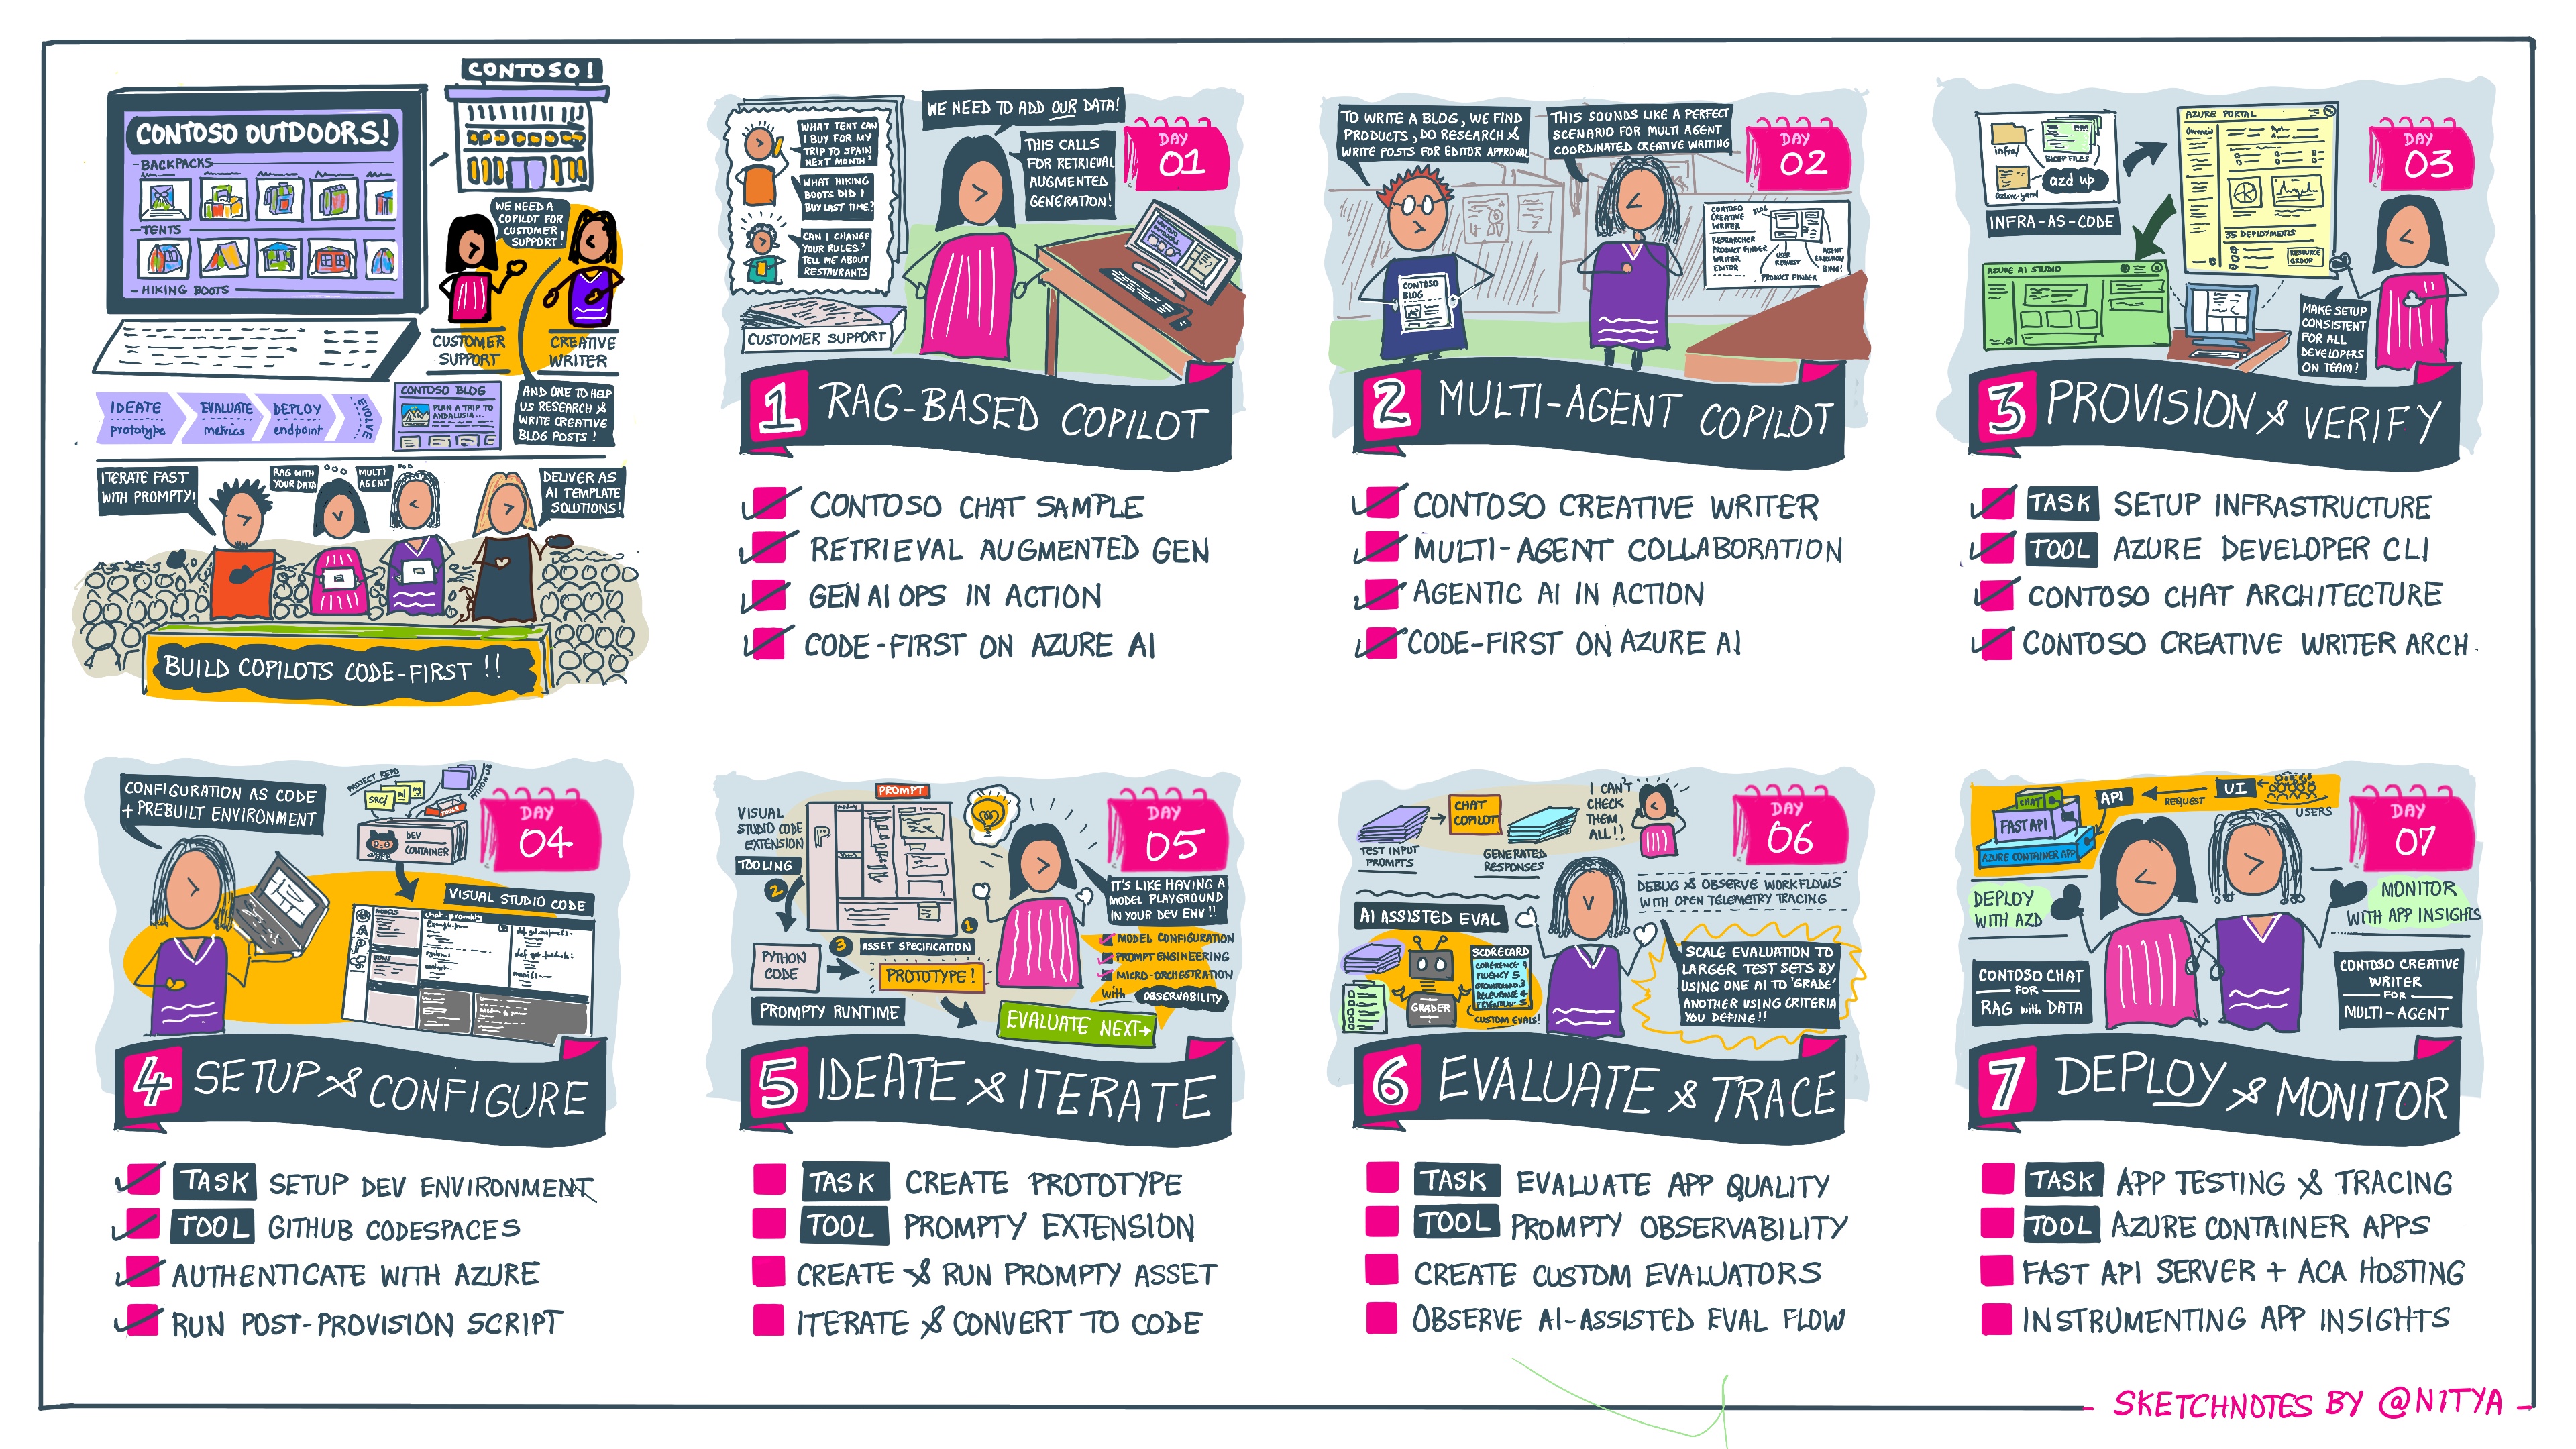 CONTOSO!
CONTOSO OUTDOORS!
BACKPACKS
TENTS
HIKING BOOTS
WE NEED A
COPILOT FOR
CUSTOMER
SUPPORT!
CUSTOMER
SUPPORT
CREATIVE
WRITER
IDEATE
prototype
EVALUATE
metrics
DEPLOY
endpoint
EVOLVE
CONTOSO BLOG
PLAN A TRIP TO
ANDALUSIA...
AND ONE TO HELP
US RESEARCH &
WRITE CREATIVE
BLOG POSTS!
ITERATE FAST
WITH PROMPTY!
RAG WITH
YOUR DATA
MULTI
AGENT
DELIVER AS
AI TEMPLATE
SOLUTIONS!
BUILD COPILOTS CODE-FIRST!!
WHAT TENT CAN
I BUY FOR MY
TRIP TO SPAIN
NEXT MONTH?
WHAT HIKING
BOOTS DID I
BUY LAST TIME?
CAN I CHANGE
YOUR RULES?
TELL ME ABOUT
RESTAURANTS
CUSTOMER SUPPORT
WE NEED TO ADD OUR DATA!
THIS CALLS
FOR RETRIEVAL
AUGMENTED
GENERATION!
DAY
01
1 RAG-BASED COPILOT
CONTOSO CHAT SAMPLE
RETRIEVAL AUGMENTED GEN
GEN AI OPS IN ACTION
CODE-FIRST ON AZURE AI
TO WRITE A BLOG, WE FIND
PRODUCTS, DO RESEARCH &
WRITE POSTS FOR EDITOR APPROVAL
THIS SOUNDS LIKE A PERFECT
SCENARIO FOR MULTI AGENT
COORDINATED CREATIVE WRITING
DAY
02
CONTOSO
BLOG
CONTOSO
CREATIVE
WRITER
BLOG
RESEARCHER
PRODUCT FINDER
WRITER
EDITOR
USER
REQUEST
AGENT
EXECUTION
BING!
PRODUCT FINDER
2 MULTI-AGENT COPILOT
CONTOSO CREATIVE WRITER
MULTI-AGENT COLLABORATION
AGENTIC AI IN ACTION
CODE-FIRST ON AZURE AI
infra/
BICEP FILES
azure.yaml
azd up
INFRA-AS-CODE
AZURE PORTAL
Overview
35 DEPLOYMENTS
RESOURCE
GROUP
AZURE AI STUDIO
DAY
03
MAKE SETUP
CONSISTENT
FOR ALL
DEVELOPERS
ON TEAM!
3 PROVISION & VERIFY
TASK SETUP INFRASTRUCTURE
TOOL AZURE DEVELOPER CLI
CONTOSO CHAT ARCHITECTURE
CONTOSO CREATIVE WRITER ARCH.
CONFIGURATION AS CODE
+ PREBUILT ENVIRONMENT
PROJECT REPO
SRC/
PYTHON LIB
TOOLS
DEV
CONTAINER
DAY
04
VISUAL STUDIO CODE
chat.prompty
4 SETUP & CONFIGURE
TASK SETUP DEV ENVIRONMENT
TOOL GITHUB CODESPACES
AUTHENTICATE WITH AZURE
RUN POST-PROVISION SCRIPT
VISUAL
STUDIO CODE
EXTENSION
TOOLING
PROMPT
2
1
3
ASSET SPECIFICATION
PYTHON
CODE
PROTOTYPE!
PROMPTY RUNTIME
EVALUATE NEXT
DAY
05
IT'S LIKE HAVING A
MODEL PLAYGROUND
IN YOUR DEV ENV!!
MODEL CONFIGURATION
PROMPT ENGINEERING
MICRO-ORCHESTRATION
with OBSERVABILITY
5 IDEATE & ITERATE
TASK CREATE PROTOTYPE
TOOL PROMPTY EXTENSION
CREATE & RUN PROMPTY ASSET
ITERATE & CONVERT TO CODE
TEST INPUT
PROMPTS
CHAT
COPILOT
GENERATED
RESPONSES
I CAN'T
CHECK
THEM
ALL!!
DAY
06
DEBUG & OBSERVE WORKFLOWS
WITH OPEN TELEMETRY TRACING
AI ASSISTED EVAL
GRADER
SCORECARD
COHERENCE 4
FLUENCY 5
GROUNDED 3
RELEVANCE 4
CUSTOM EVALS!
SCALE EVALUATION TO
LARGER TEST SETS BY
USING ONE AI TO 'GRADE'
ANOTHER USING CRITERIA
YOU DEFINE!!
6 EVALUATE & TRACE
TASK EVALUATE APP QUALITY
TOOL PROMPTY OBSERVABILITY
CREATE CUSTOM EVALUATORS
OBSERVE AI-ASSISTED EVAL FLOW
CHAT
FAST API
AZURE CONTAINER APP
API
REQUEST
UI
USERS
DAY
07
DEPLOY
WITH AZD
MONITOR
WITH APP INSIGHTS
CONTOSO CHAT
FOR
RAG with DATA
CONTOSO CREATIVE
WRITER
FOR
MULTI-AGENT
7 DEPLOY & MONITOR
TASK APP TESTING & TRACING
TOOL AZURE CONTAINER APPS
FAST API SERVER + ACA HOSTING
INSTRUMENTING APP INSIGHTS
SKETCHNOTES BY @NITYA